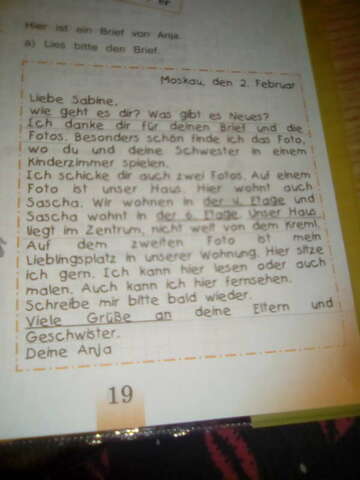 er
Hier ist ein Brief von Anja.
a) Lies bitte den Brief.
Moskau, den 2. Februar
Liebe Sabine,
wie geht es dir? Was gibt es Neues?
Ich danke dir für deinen Brief und die
Fotos. Besonders schön finde ich das Foto,
wo du und deine Schwester in einem
Kinderzimmer spielen.
Ich schicke dir auch zwei Fotos. Auf einem
Foto ist unser Haus. Hier wohnt auch
Sascha. Wir wohnen in der 4. Etage und
Sascha wohnt in der 6. Etage. Unser Haus
liegt im Zentrum, nicht weit von dem Kreml.
Auf dem zweiten Foto ist mein
Lieblingsplatz in unserer Wohnung. Hier sitze
ich gern. Ich kann hier lesen oder auch
malen. Auch kann ich hier fernsehen.
Schreibe mir bitte bald wieder.
Viele Grüße an deine Eltern und
Geschwister.
Deine Anja
19